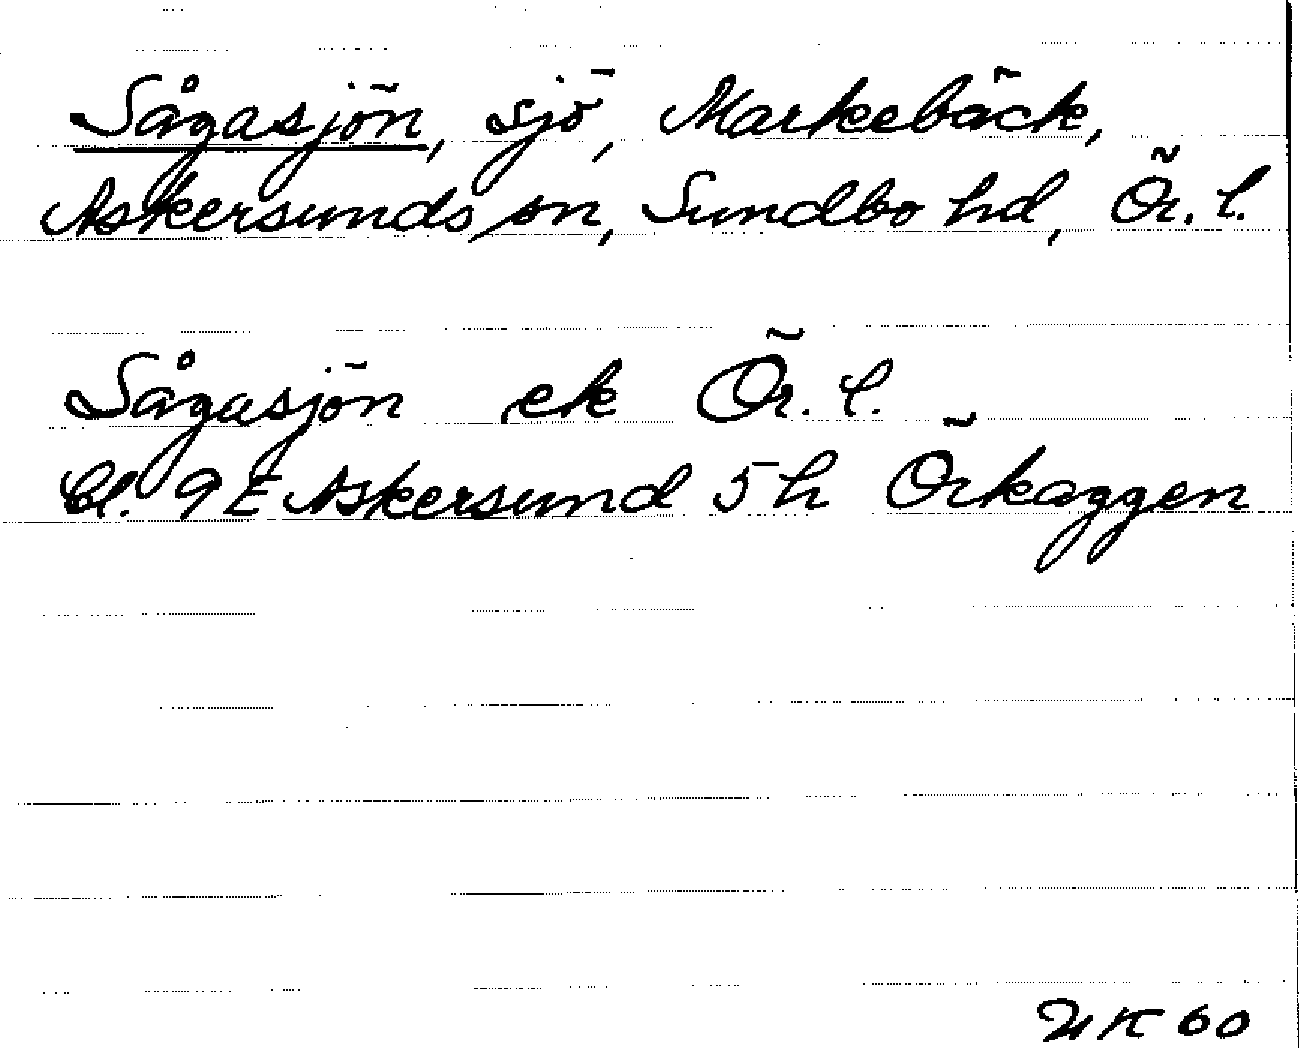 Sågasjön, sjö, Markebäck,
Askersunds sn, Sundbo hd, Ör. l.
Sågasjön ek Ör. l.
bl. 9 E Askersund 5 h Örkaggen
UK 60